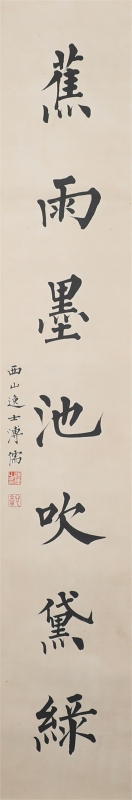 蕉雨墨池吹黛綠
西山逸士溥儒